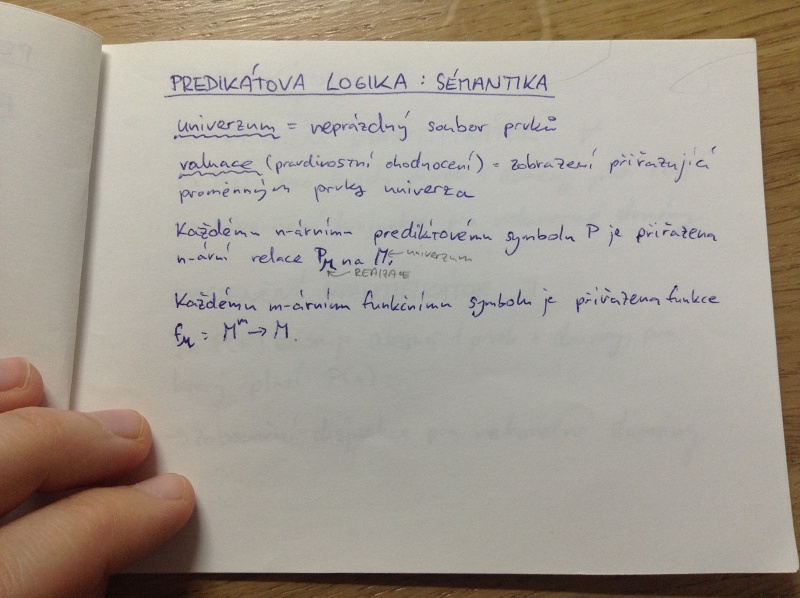 PREDIKÁTOVA LOGIKA : SÉMANTIKA
univerzum = neprázdný soubor prvků
valuace (pravdivostní ohodnocení) = zobrazení přiřazující
proměnným prvky univerza
Každému n-árnímu predikátovému symbolu P je přiřazena
n-ární relace Pₘ na M. ← univerzum
← REALIZACE
Každému m-árnímu funkčnímu symbolu je přiřazena funkce
fₘ : Mᵐ → M.